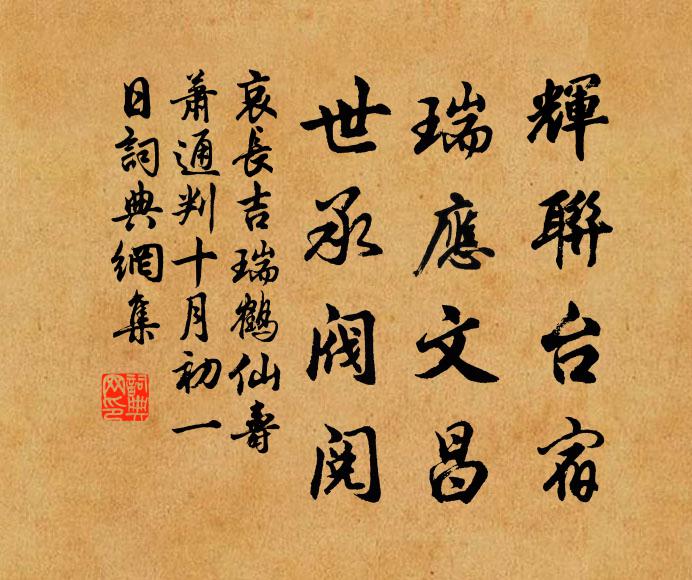 輝聯台宿
瑞應文昌
世承閥閱
哀長吉瑞鶴仙壽
蕭通判十月初一
日詞典網集
詞典網印